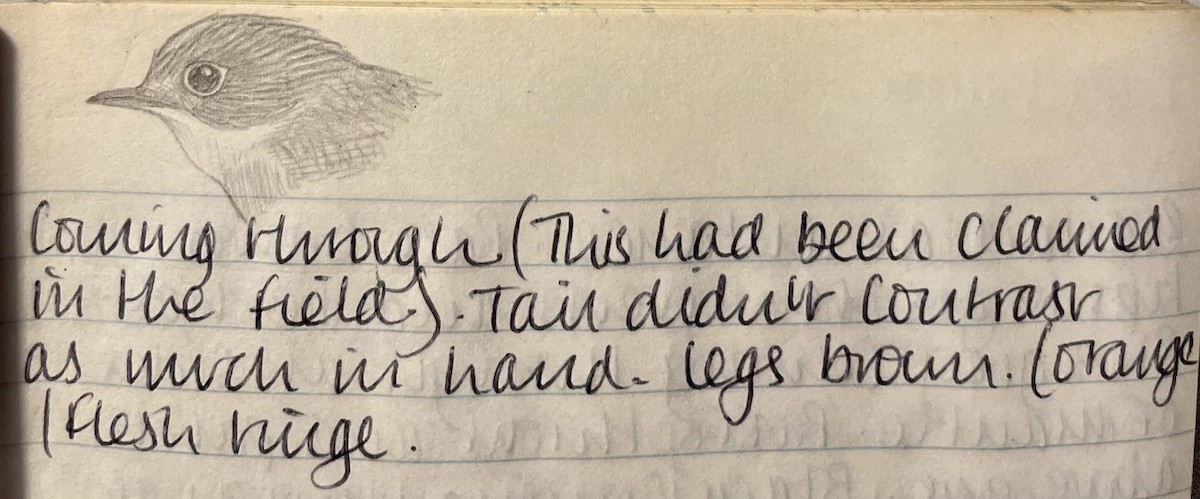 Coming through (This had been claimed
in the field). Tail didn't contrast
as much in hand. Legs brown. (orange
/flesh tinge.